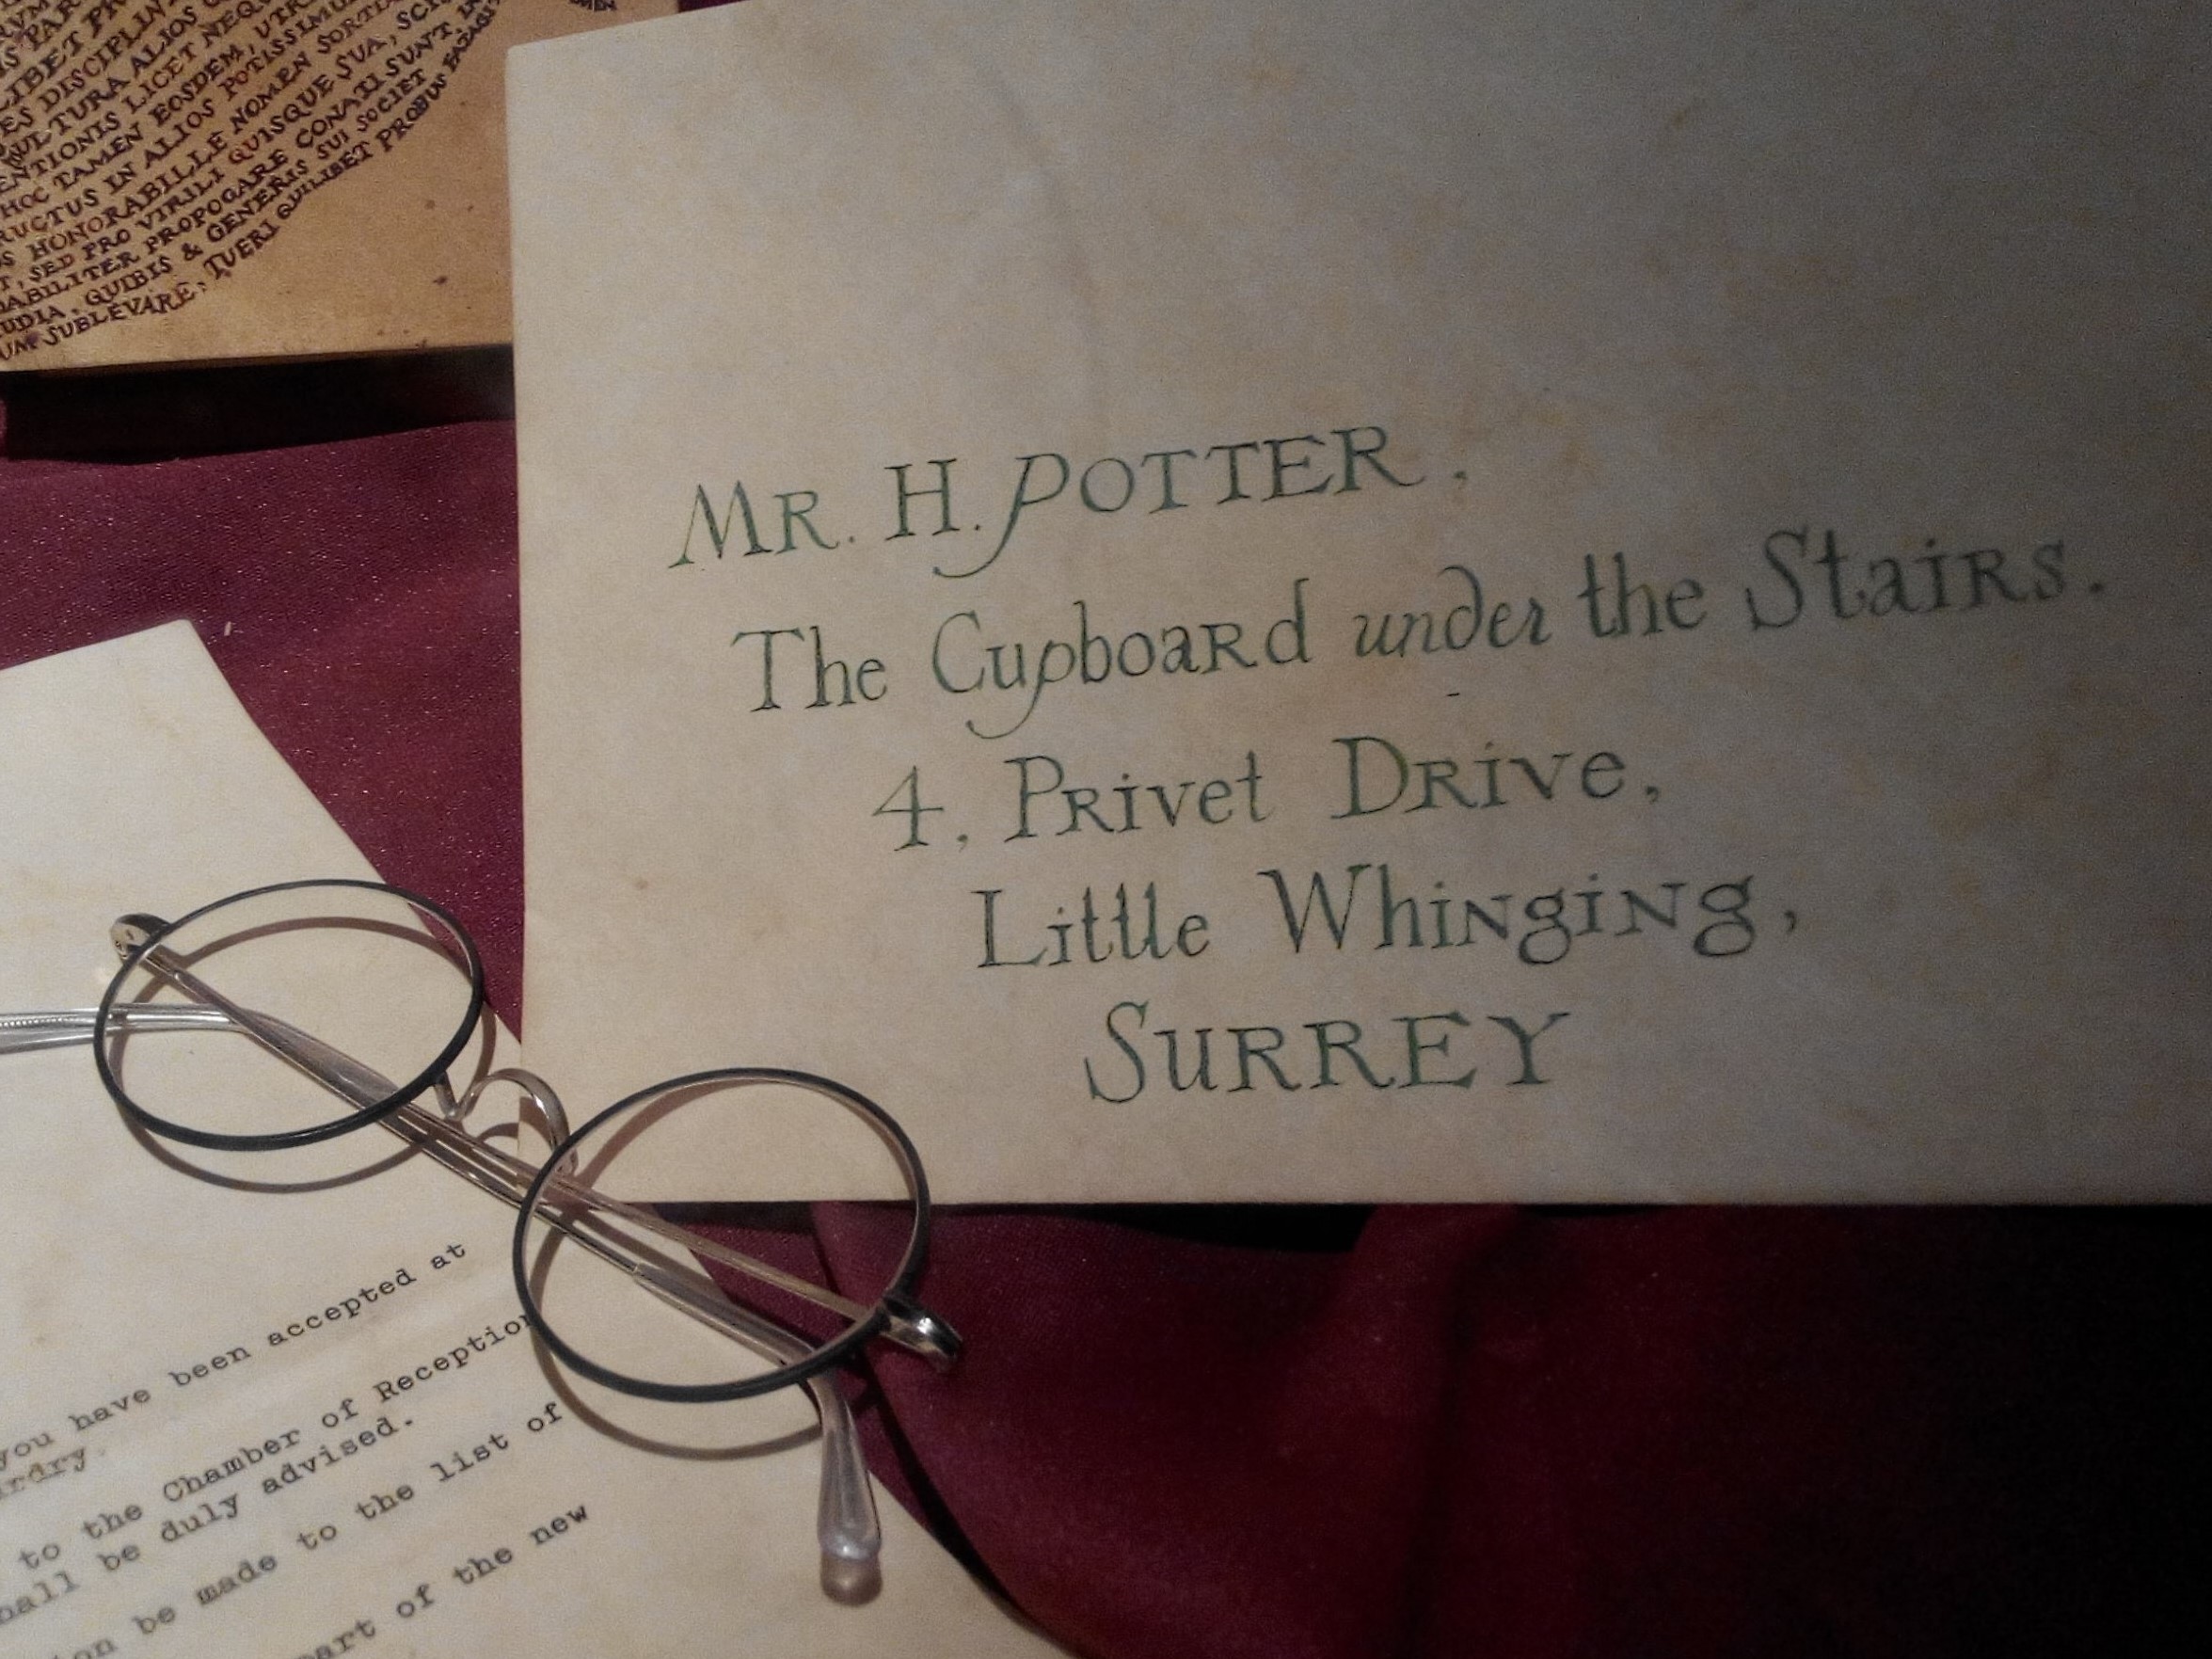 LIBET
ES DISCIPLIN
TURA ALIOS
ENTIONIS LICET NEQU
HOC TAMEN EOSDEM, UTR
RUCTUS IN ALIOS POTISSIMU
S HONORABILLE NOMEN SORTIA
T, SED PRO VIRILI QUISQUE SUA, SCI
ABILITER PROPOGARE CONATI SUNT IN
UDIA, QUIBIS & GENERIS SUI SOCIET
UM SUBLEVARE, TUERI QUILIBET PROBUS
MR. H. POTTER,
The Cupboard under the Stairs.
4, Privet Drive,
Little Whinging,
SURREY
you have been accepted at
ardry.
to the Chamber of Reception
hall be duly advised.
on be made to the list of
part of the new